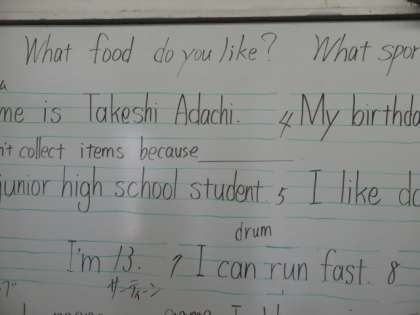 What food do you like? What spor
me is Takeshi Adachi. 4 My birthda
n't collect items because
junior high school student 5 I like do
drum
I'm 13. 7 I can run fast. 8
サーティーン